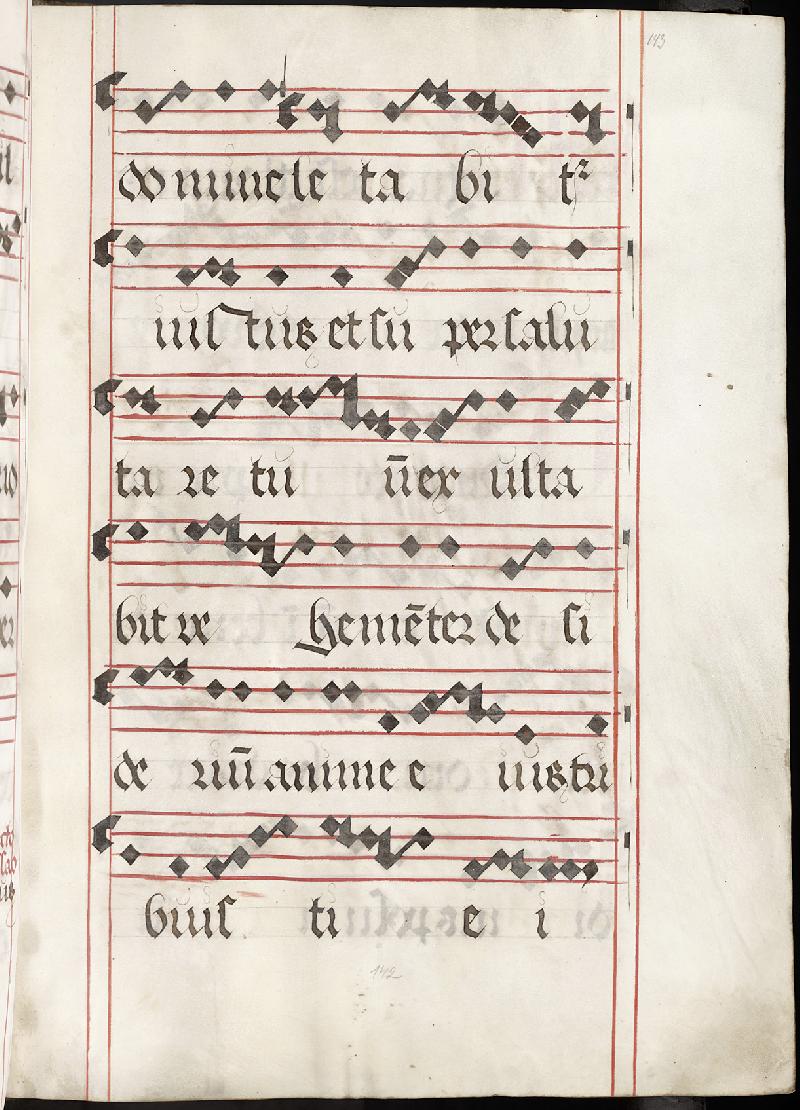 143
domine le ta bi tr
iustus et su per salu
ta re tu ū ex ulta
bit ve hemēter de si
de riū anime e iustri
buis ti e i
142